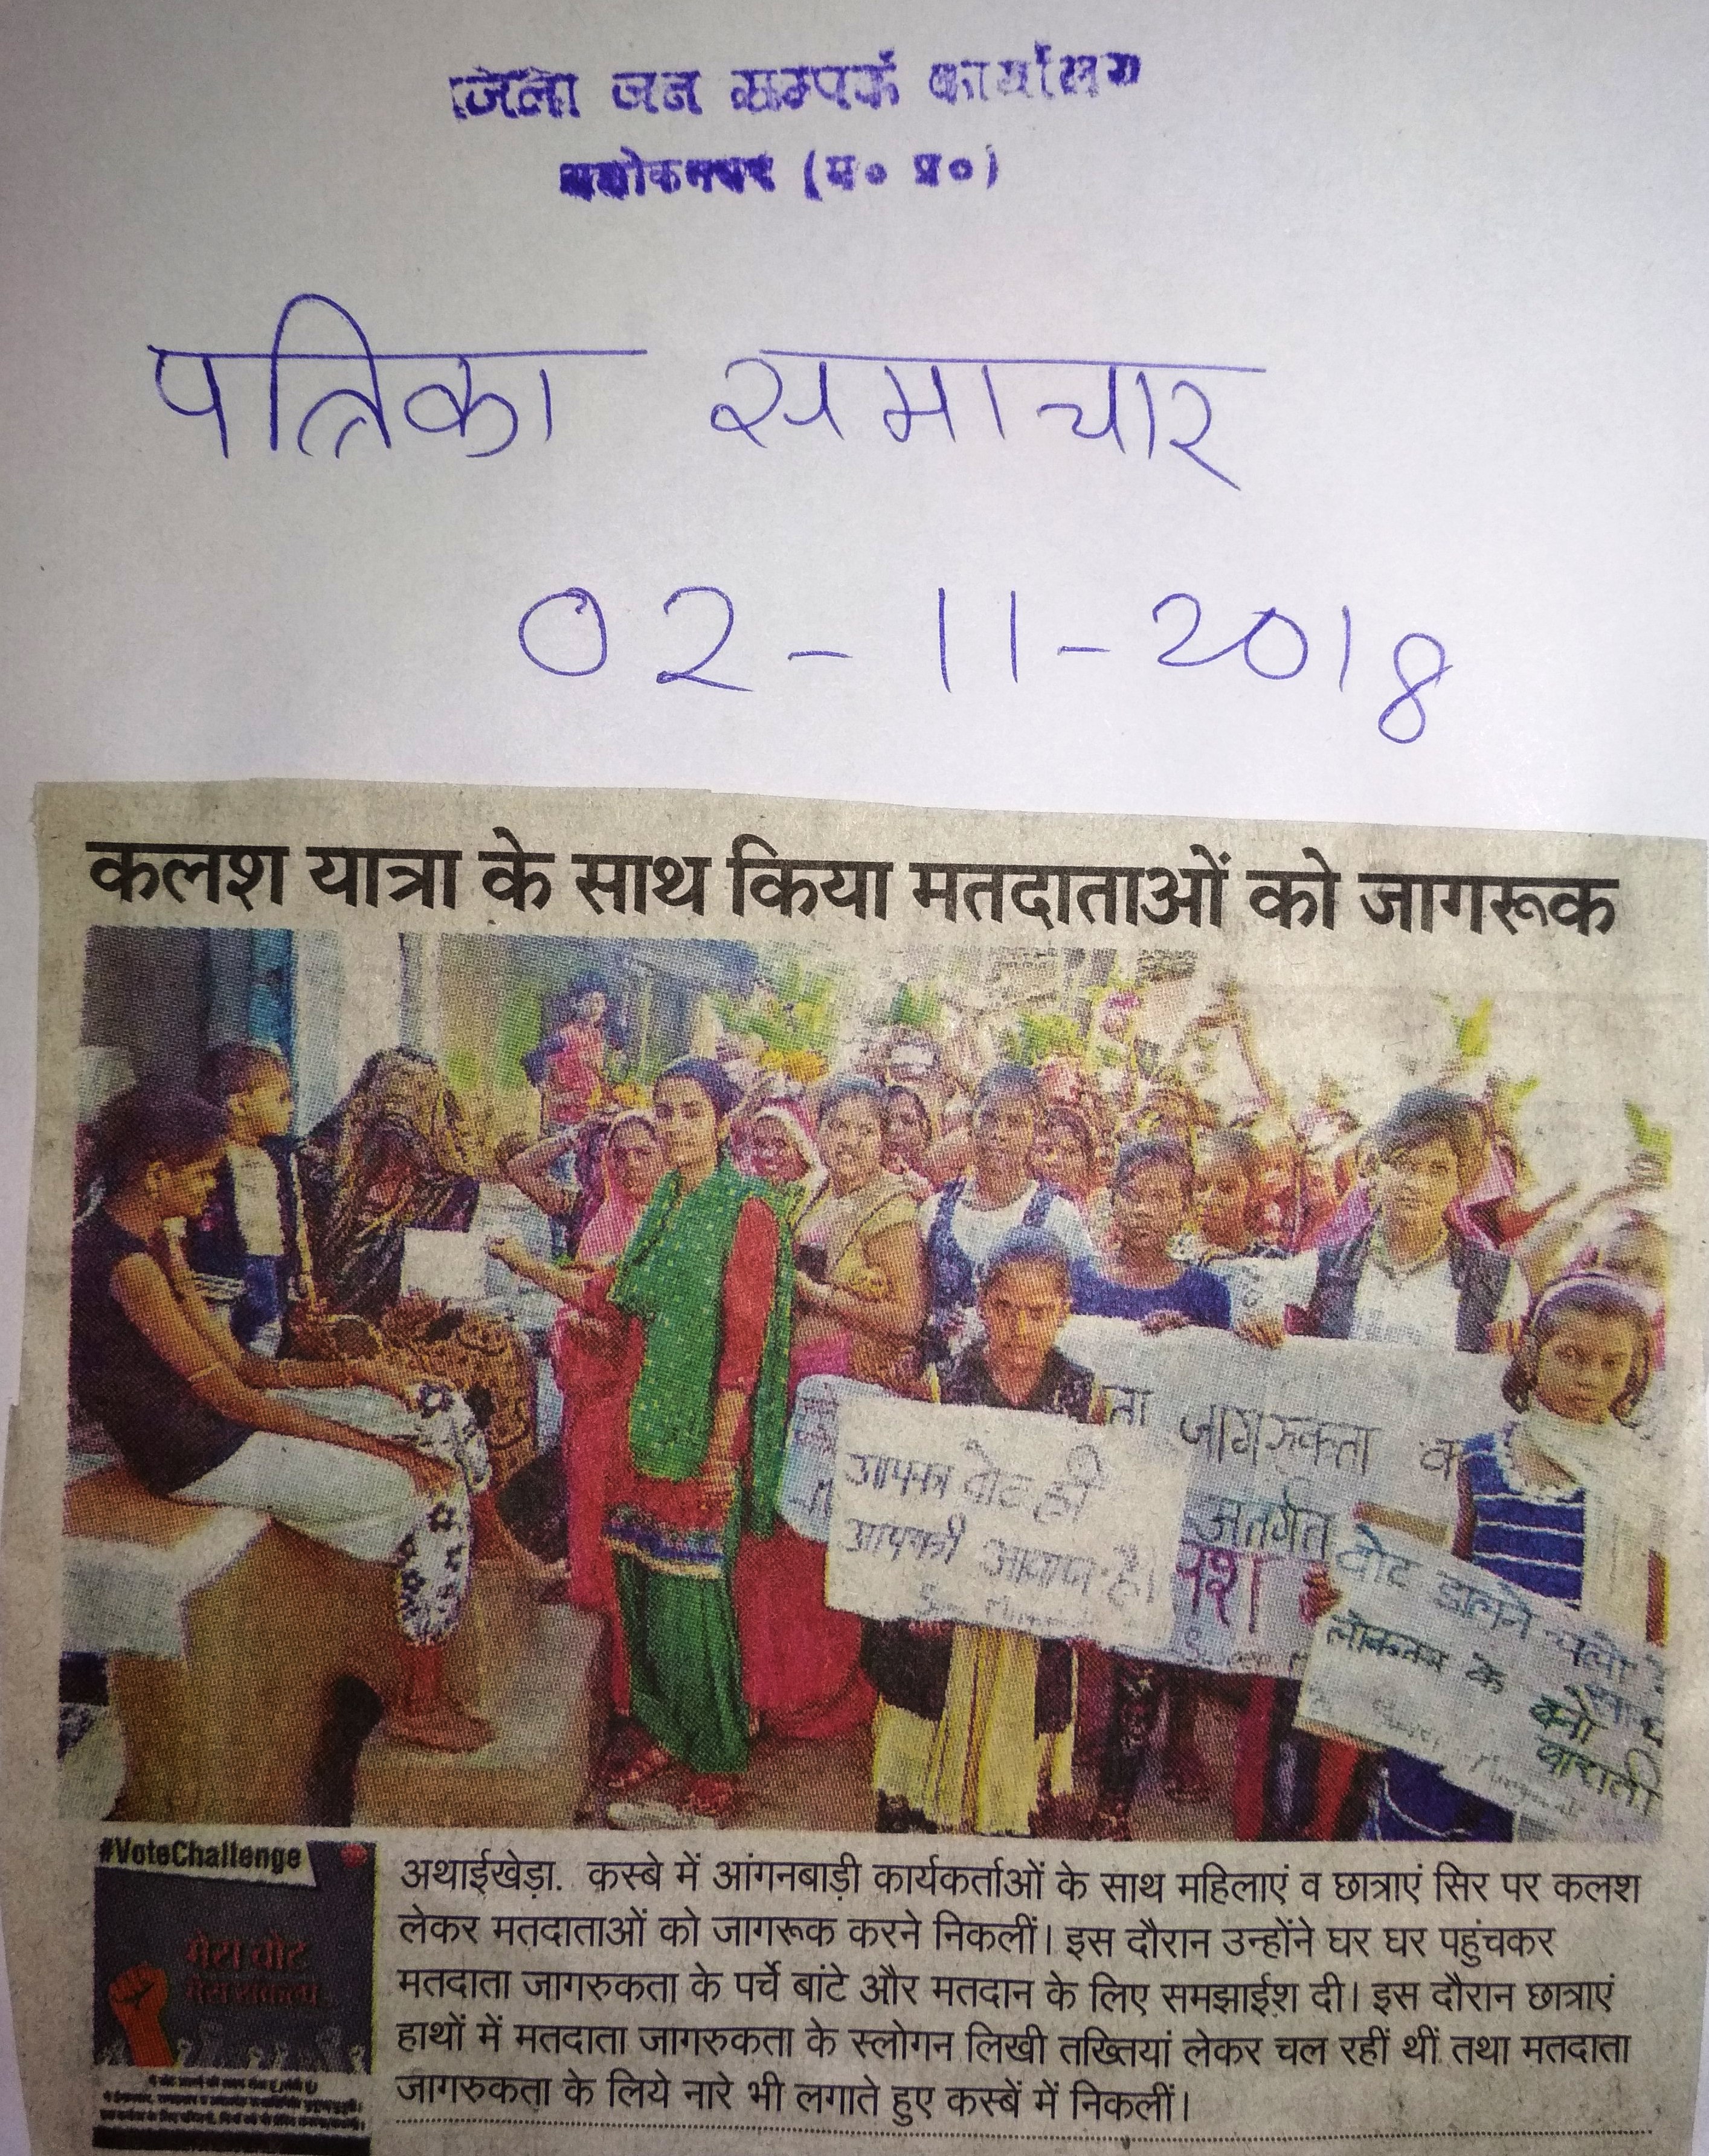 जिला जन सम्पर्क कार्यालय
अशोकनगर (म० प्र०)
पत्रिका समाचार
02-11-2018
कलश यात्रा के साथ किया मतदाताओं को जागरूक
ता जागरुकता क
अंतर्गत
आपका वोट ही
आपकी आवाज है।
वोट डालने चलो
लोकतंत्र के बनो
#VoteChallenge
मेरा वोट
मेरा संकल्प
अथाईखेड़ा. कस्बे में आंगनबाड़ी कार्यकर्ताओं के साथ महिलाएं व छात्राएं सिर पर कलश
लेकर मतदाताओं को जागरूक करने निकलीं। इस दौरान उन्होंने घर घर पहुंचकर
मतदाता जागरुकता के पर्चे बांटे और मतदान के लिए समझाईश दी। इस दौरान छात्राएं
हाथों में मतदाता जागरुकता के स्लोगन लिखी तख्तियां लेकर चल रहीं थीं तथा मतदाता
जागरुकता के लिये नारे भी लगाते हुए कस्बें में निकलीं।